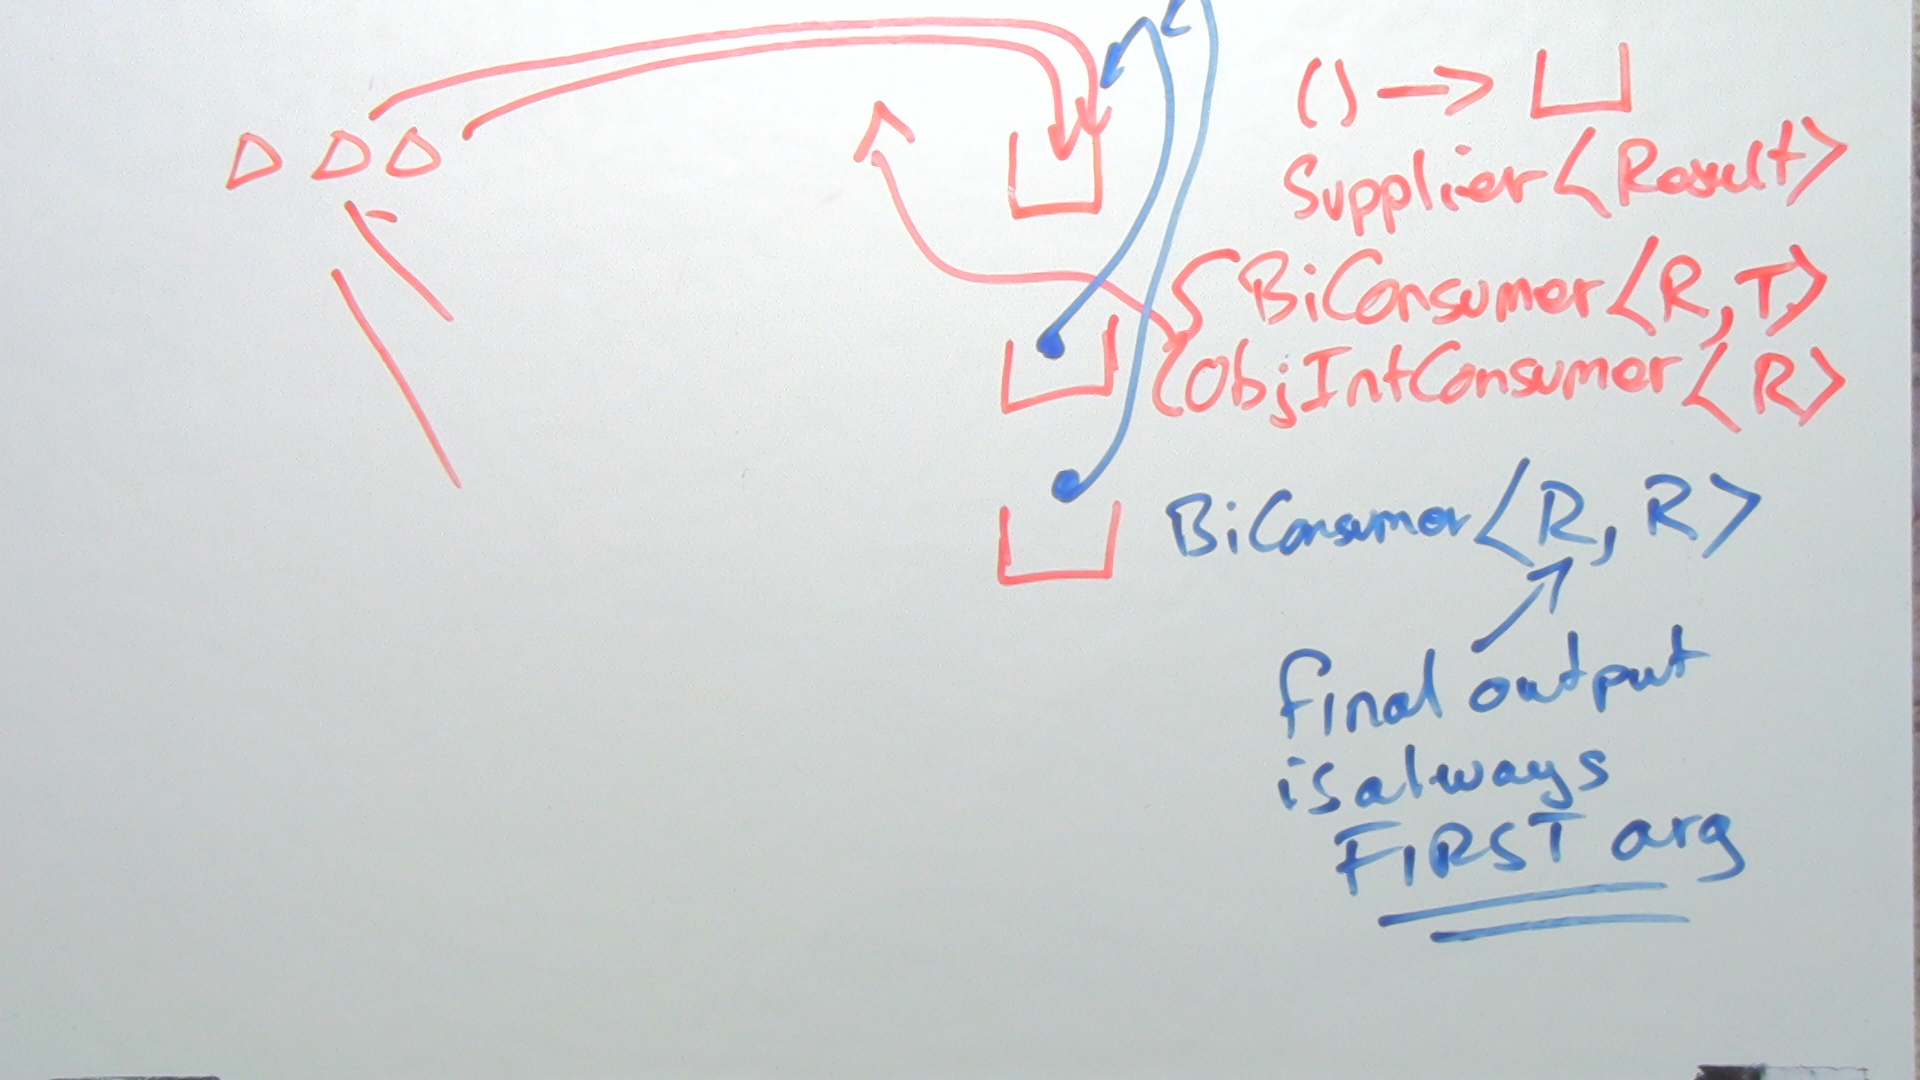 () → 
Supplier<Result>
BiConsumer<R, T>
ObjIntConsumer<R>
BiConsumer<R, R>
final output
is always
FIRST arg